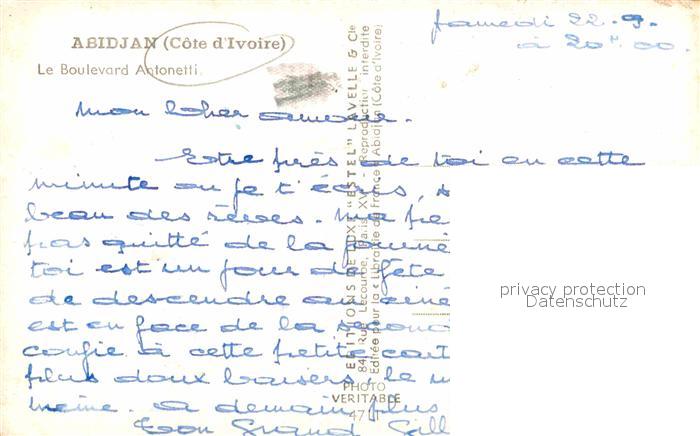 Samedi 22-9-
à 20H 00.
ABIDJAN (Côte d'Ivoire)
Le Boulevard Antonetti
Mon Cher amour.
Etre près de toi en cette
minute où je t'écris,
beau des rêves. Ma
pas quitté de la journé
toi est un jour de fête
de descendre au ciné
est en face de la
confie à cette petite cart
plus doux baisers, le
meine. A demain plus
Ton Grand
EDITIONS DE LUXE "ESTEL" LAVELLE & Cie
84, Rue Lecourbe, Paris XV - Reproduction interdite
Editée pour la « Librairie de France » Abidjan (Côte d'Ivoire)
PHOTO
VERITABLE
privacy protection
Datenschutz